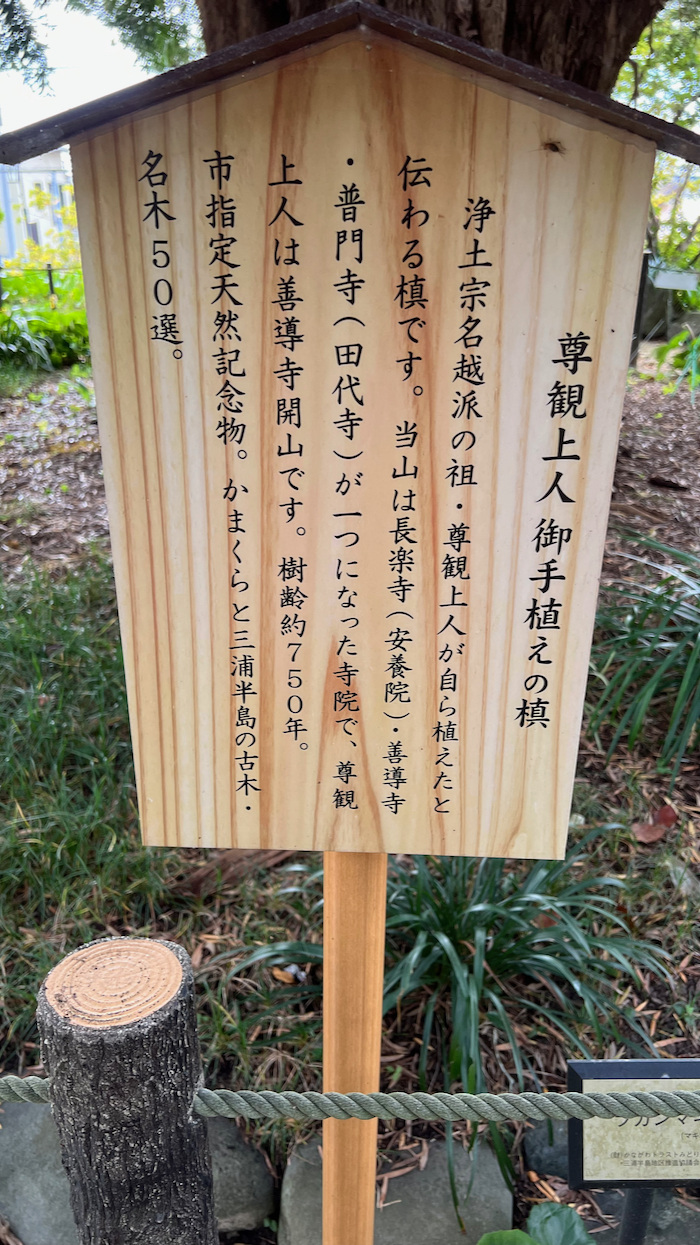 尊観上人御手植えの槙
浄土宗名越派の祖・尊観上人が自ら植えたと
伝わる槙です。当山は長楽寺(安養院)・善導寺
・普門寺(田代寺)が一つになった寺院で、尊観
上人は善導寺開山です。樹齢約750年。
市指定天然記念物。かまくらと三浦半島の古木・
名木50選。